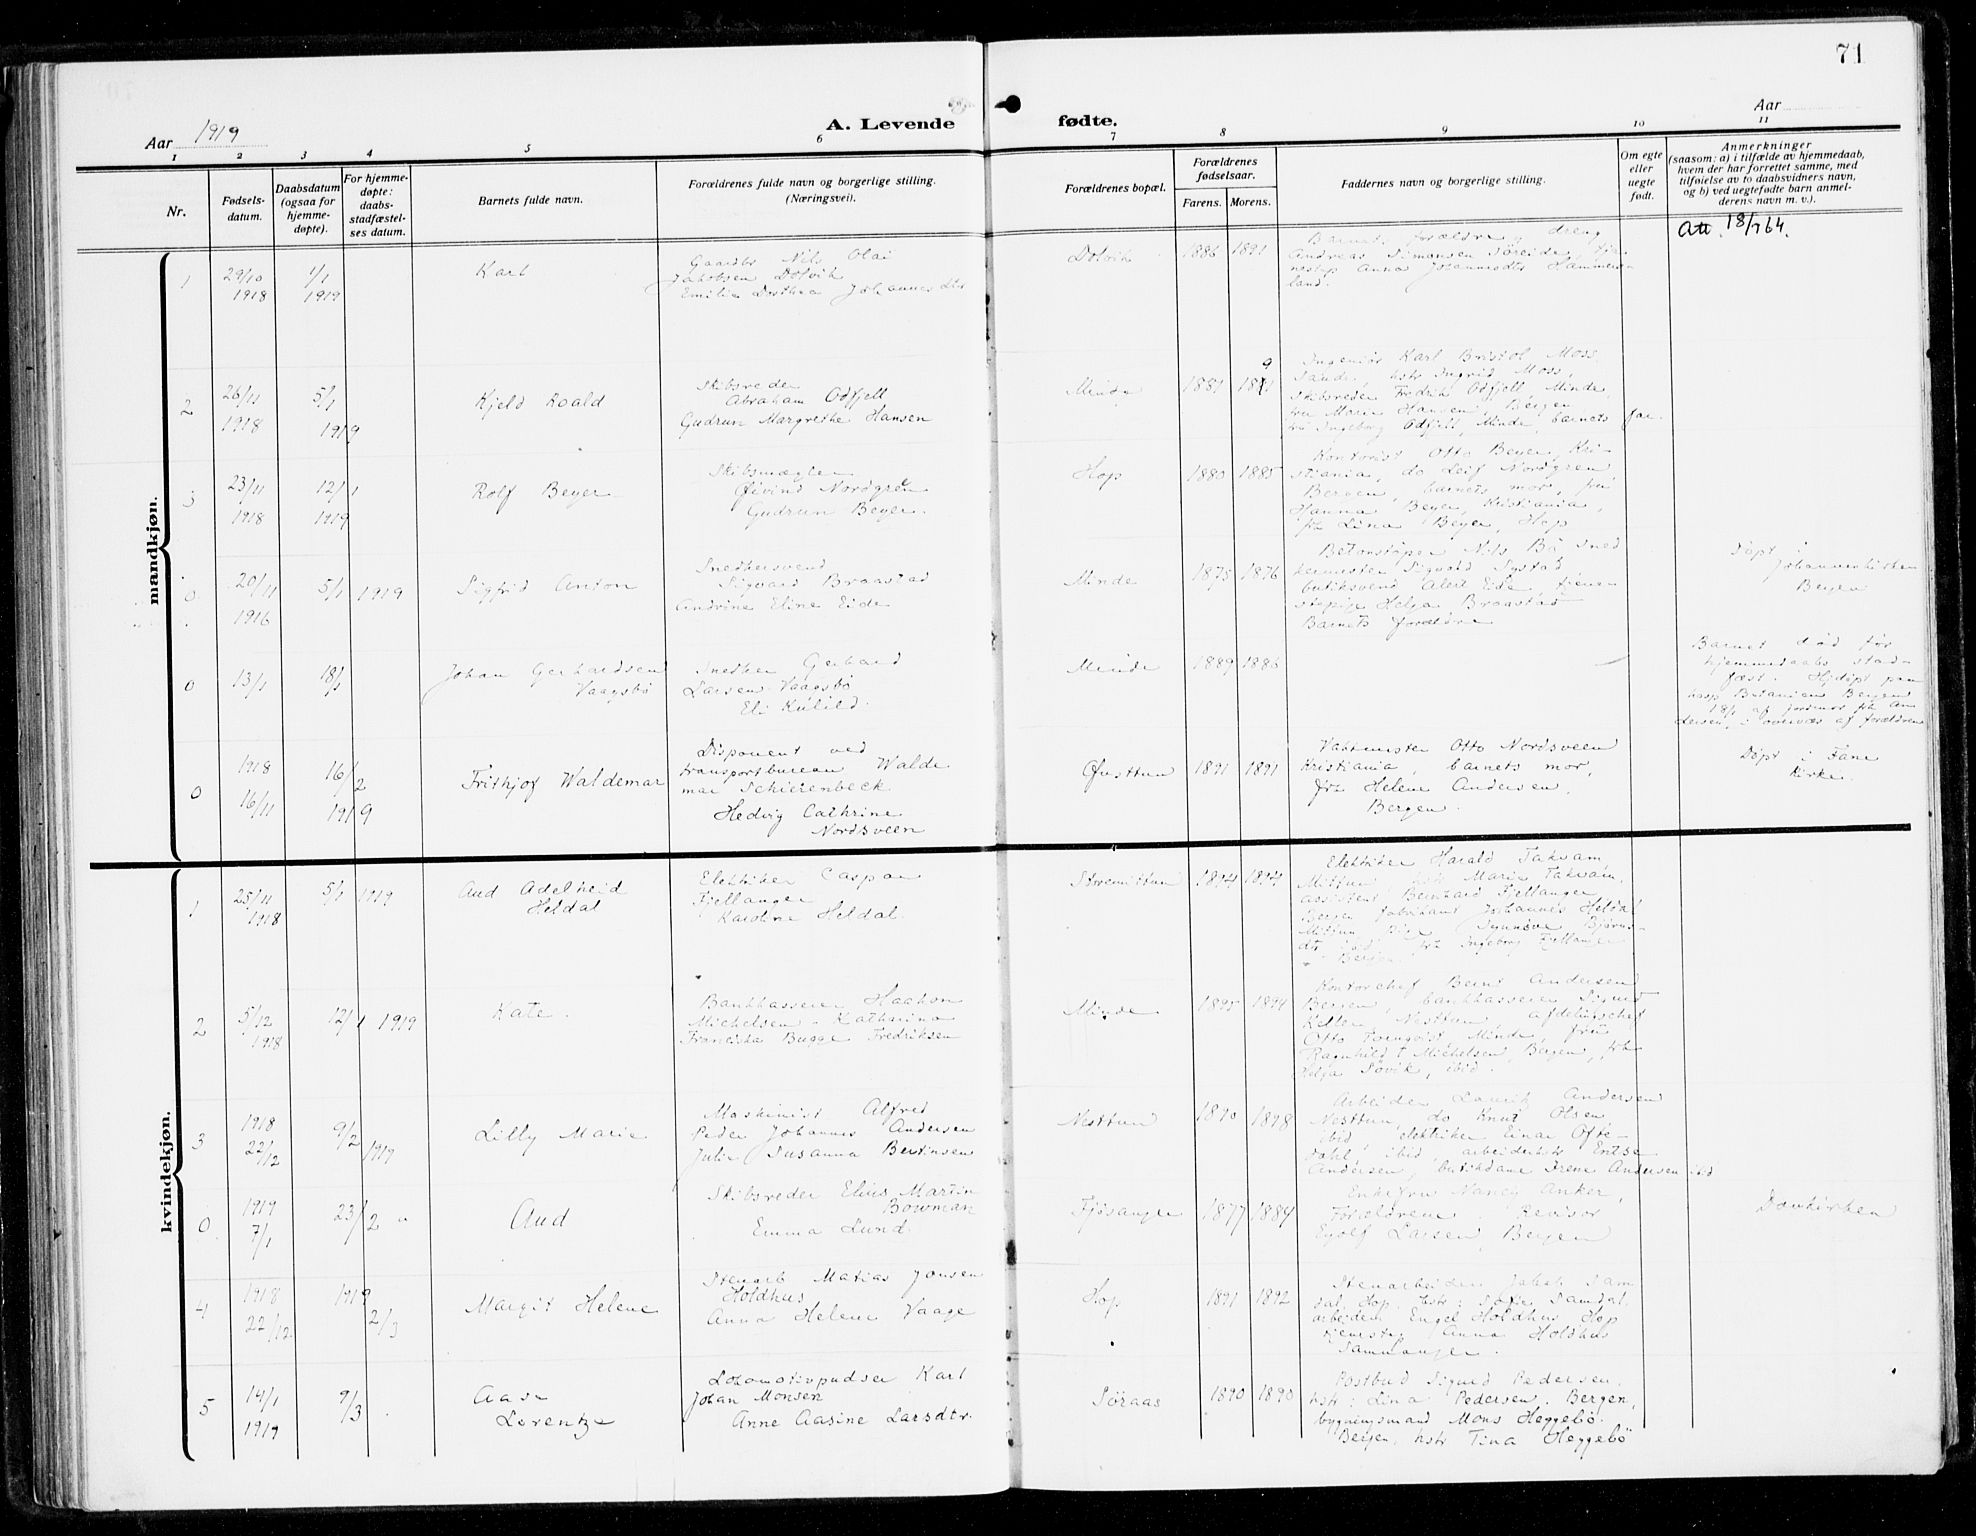 71
Aar 1919
A. Levende fødte.
Aar
1 2 3 4 5 6 7 8 9 10 11
Nr.
Fødsels-
datum.
Daabsdatum
(ogsaa for
hjemme-
døpte).
For hjemme-
døpte:
daabs-
stadfæstel-
ses datum.
Barnets fulde navn.
Forældrenes fulde navn og borgerlige stilling.
(Næringsvei).
Forældrenes bopæl.
Forældrenes
fødselsaar.
Farens. Morens.
Faddernes navn og borgerlige stilling.
Om egte
eller
uegte
født.
Anmerkninger
(saasom: a) i tilfælde av hjemmedaab,
hvem der har forrettet samme, med
tilføielse av to daabsvidners navn,
og b) ved uegtefødte barn anmel-
derens navn m. v.).
mandkjøn.
1
29/10
1918
1/1
1919
Karl
Gaardbr Nils Olai
Jakobsen Dolvik
Emilie Dorthea Johannesdtr
Dolvik
1886 1891
Barnets forældre, dreng
Andreas Simonsen Søreide,
Anna Johannesdtr Hammers-
land.
Att. 18/7 64.
2
26/11
1918
5/1
1919
Kjeld Roald
Skibsreder
Abraham Odfjell
Gudrun Margrethe Hansen
Minde
1881
9
Ingeniør Karl Bristol Moss,
Sande, hstr Ingrid Moss,
skibsreder Fredrik Odfjell, Minde,
fru Marie Hansen, Bergen
frk Ingeborg Odfjell, Minde, barnets far.
3
23/11
1918
12/1
1919
Rolf Beyer
Skibsmægler
Øivind Nordgren
Gudrun Beyer.
Hop
1880 1885
Kontorist Otto Beyer, Kri-
stiania, do Leif Nordgren
Bergen, barnets mor, fru
Hanna Beyer, Kristiania,
frk Lina Beyer, Hop
0
20/11
1916
5/1 1919
Sigfrid Anton
Snedkersvend
Sigvard Braastad
Andrine Eline Eide
Minde
1875 1876
Betonstøper Nils Bø sned
kermester Sigvald Systad
butiksvend Alert Eide tjene
stepige Helga Braastad
Barnets forældre
Døpt i
Johanneskirken
Bergen
0
13/1
18/1
Johan Gerhardsen
Vaagsbø
Snedker Gerhard
Larsen Vaagsbø
Eli Kulild.
Minde
1889 1886
Barnet død før
hjemmedaabs stad-
fæst. Hjdøpt paa
hosp Betanien Bergen
18/1 af jordmor frk An
dersen, i overvær af forældrene
0
1918
16/11
16/2
1919
Frithjof Waldemar
Disponent ved
transportbureau Walde
mar Schierenbeck
Hedvig Cathrine
Nordsveen
Øvsttun
1891 1891
Vaktmester Otto Nordsveen
Kristiania, barnets mor,
frk Helene Andersen,
Bergen.
Døpt i Fane
Kirke.
kvindekjøn.
1
25/11
1918
5/1 1919
Aud Adelheid
Heldal
Elektriker Caspar
Fjellanger
Karoline Heldal.
Storemittun
1894 1894
Elektriker Harald Takvam
Mittun, hstr Marie Takvam,
assistent Bernhard Fjellanger
Bergen fabrikant Johannes Heldal
Mittun, pige Synnøve Bjørns-
dtr ibid, frk Ingeborg Fjellanger
Bergen.
2
5/12
1918
12/1 1919
Kate.
Bankkasserer Haakon
Michelsen - Katharina
Franciska Bugge Fredriksen
Minde
1895 1894
Kontorchef Bernt Andersen
Bergen, bankkasserer Sigurd
Nesttun, afdelingschef
Otto Tornqvist Minde, fru
Ragnhild Michelsen, Bergen, frk
Helga Søvik, ibid.
3
1918
22/12
9/2 1919
Lilly Marie
Maskinist Alfred
Peder Johannes Andersen
Julie Susanna Bertinsen
Nesttun
1890 1898
Arbeider Lauritz Andersen
Nesttun, do Knut Olsen
ibid, elektriker Einar Ofte-
dahl, ibid, arbeiderhstr
Andersen, butikdame Irene Andersen ibid
0
1919
7/1
23/2 "
Aud
Skibsreder Elius Martin
Bowman
Emma Lund.
Fjøsanger
1877 1884
Enkefru Nancy Anker,
Forældrene. Revisor
Eyolf Larsen, Bergen
Domkirken
4
1918
22/12
1919
2/3
Margit Helene
Stenarb Matias Jonsen
Holdhus
Anna Helene Vaage
Hop
1891 1892
Stenarbeider Jakob Sam
dal, Hop, hstr: Sofie Samdal,
arbeider Engel Holdhus Hop
Anna Holdhus
Samnanger.
5
14/1
1919
9/3
Aase
Lorentze
Lokomotivpudser Karl
Johan Monsen
Anne Aasine Larsdtr.
Søraas
1890 1890
Postbud Sigurd Pedersen,
hstr: Lina Pedersen, Bergen,
bygningsmand Mons Heggebø.
Bergen, hstr Tina Heggebø